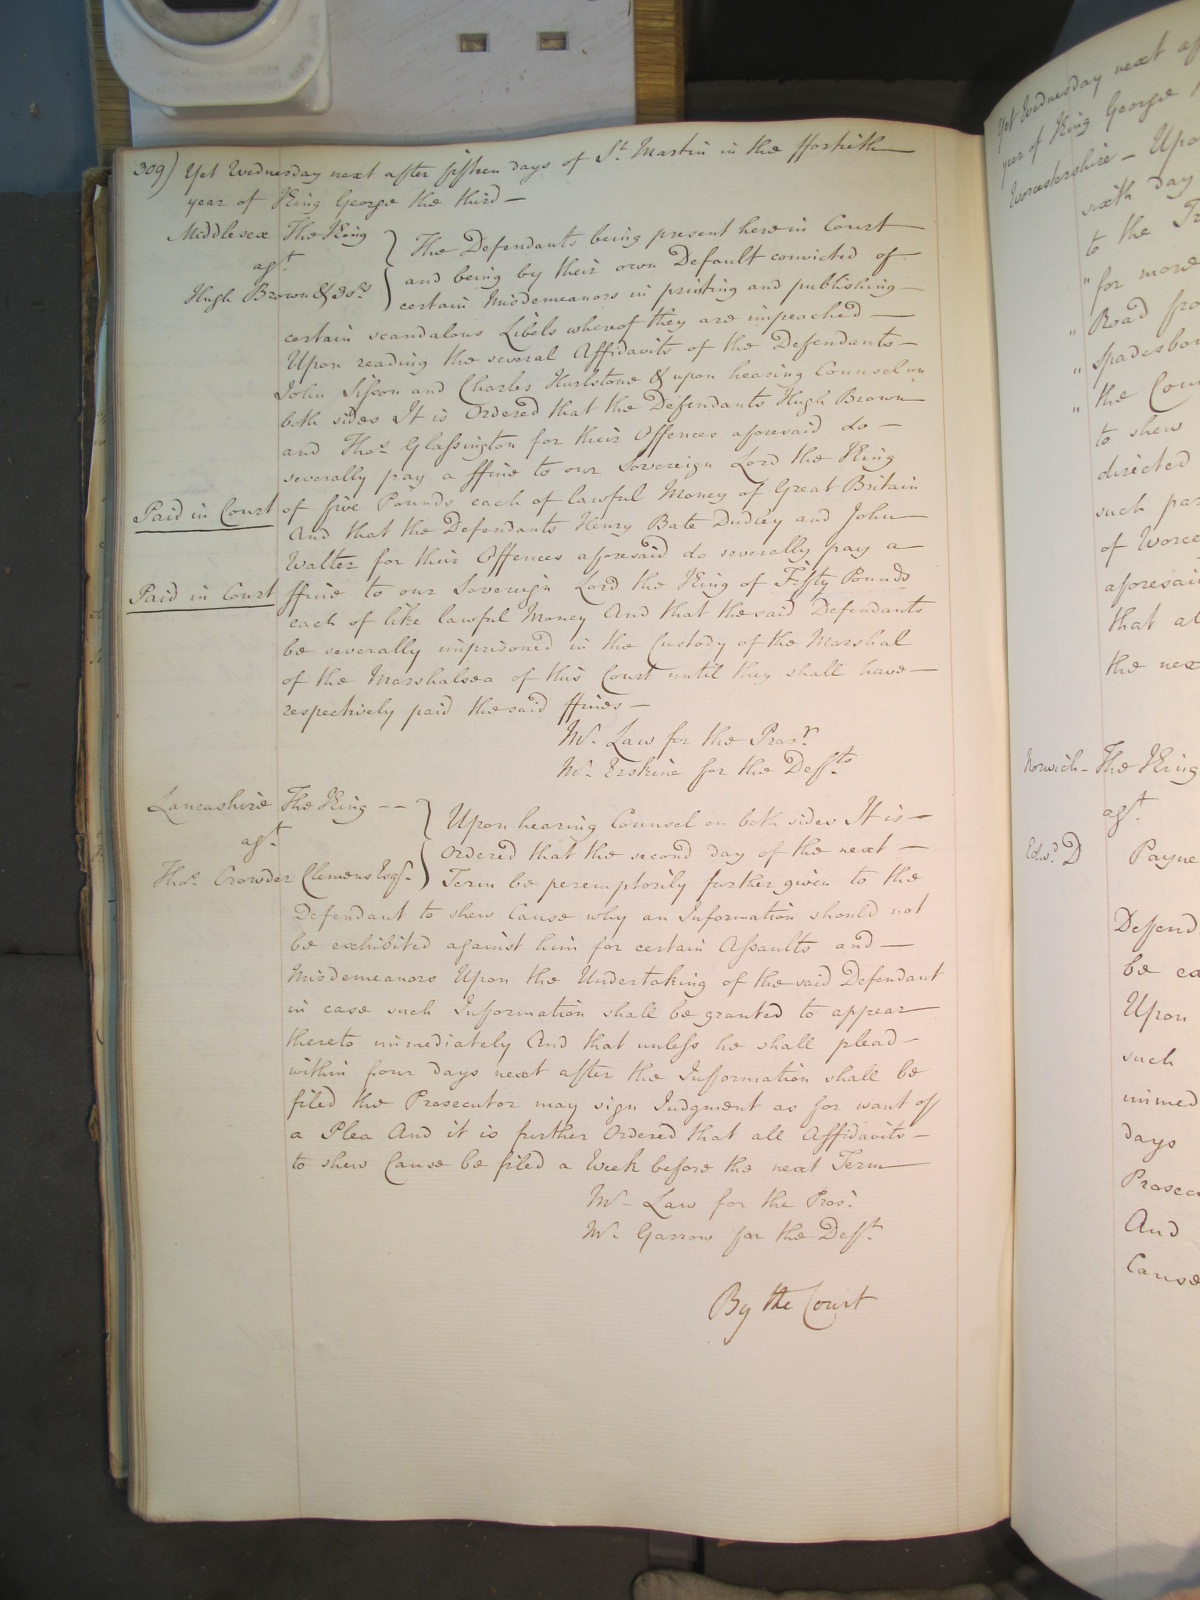 309) Yet Wednesday next after fifteen days of St. Martin in the ffortieth
year of King George the third —
Middlesex The King
agt.
Hugh Brown & 3 ors.
The Defendants being present here in Court
and being by their own Default convicted of
certain Misdemeanors in printing and publishing —
certain scandalous Libels whereof they are impeached —
Upon reading the several Affidavits of the Defendants —
John Sisson and Charles Hurlstone & upon hearing Counsel on
both sides It is Ordered that the Defendants Hugh Brown
and Thos. Glassington for their Offences aforesaid do —
severally pay a ffine to our Sovereign Lord the King
Paid in Court
of five Pounds each of lawful Money of Great Britain
And that the Defendants Henry Bate Dudley and John
Walter for their Offences aforesaid do severally pay a
Paid in Court
ffine to our Sovereign Lord the King of Fifty Pounds
each of like lawful Money And that the said Defendants
be severally imprisoned in the Custody of the Marshal
of the Marshalsea of this Court until they shall have —
respectively paid the said ffines —
Mr. Law for the Prosr.
Mr. Erskine for the Defts.
Lancashire The King — —
agt.
Thos. Crowder Clemens Esqr.
Upon hearing Counsel on both sides It is —
Ordered that the second day of the next —
Term be peremptorily further given to the
Defendant to shew Cause why an Information should not
be exhibited against him for certain Assaults and —
Misdemeanors Upon the Undertaking of the said Defendant
in case such Information shall be granted to appear
thereto immediately And that unless he shall plead —
within four days next after the Information shall be
filed the Prosecutor may sign Judgment as for want of
a Plea And it is further Ordered that all Affidavits —
to shew Cause be filed a Week before the next Term
Mr. Law for the Pros.
Mr. Garrow for the Deft.
By the Court
Yet Wednesday next af
year of King George
Worcestershire — Upo
sixth day
to the
" for more
" Road fro
" Spadesbor
" the Cou
to shew
directed
such par
of Worce
aforesai
that al
the nex
Norwich — The King
agt.
Edwd. D Payne
Deffend
be ex
Upon
such
immed
days
Prosec
And
Cause